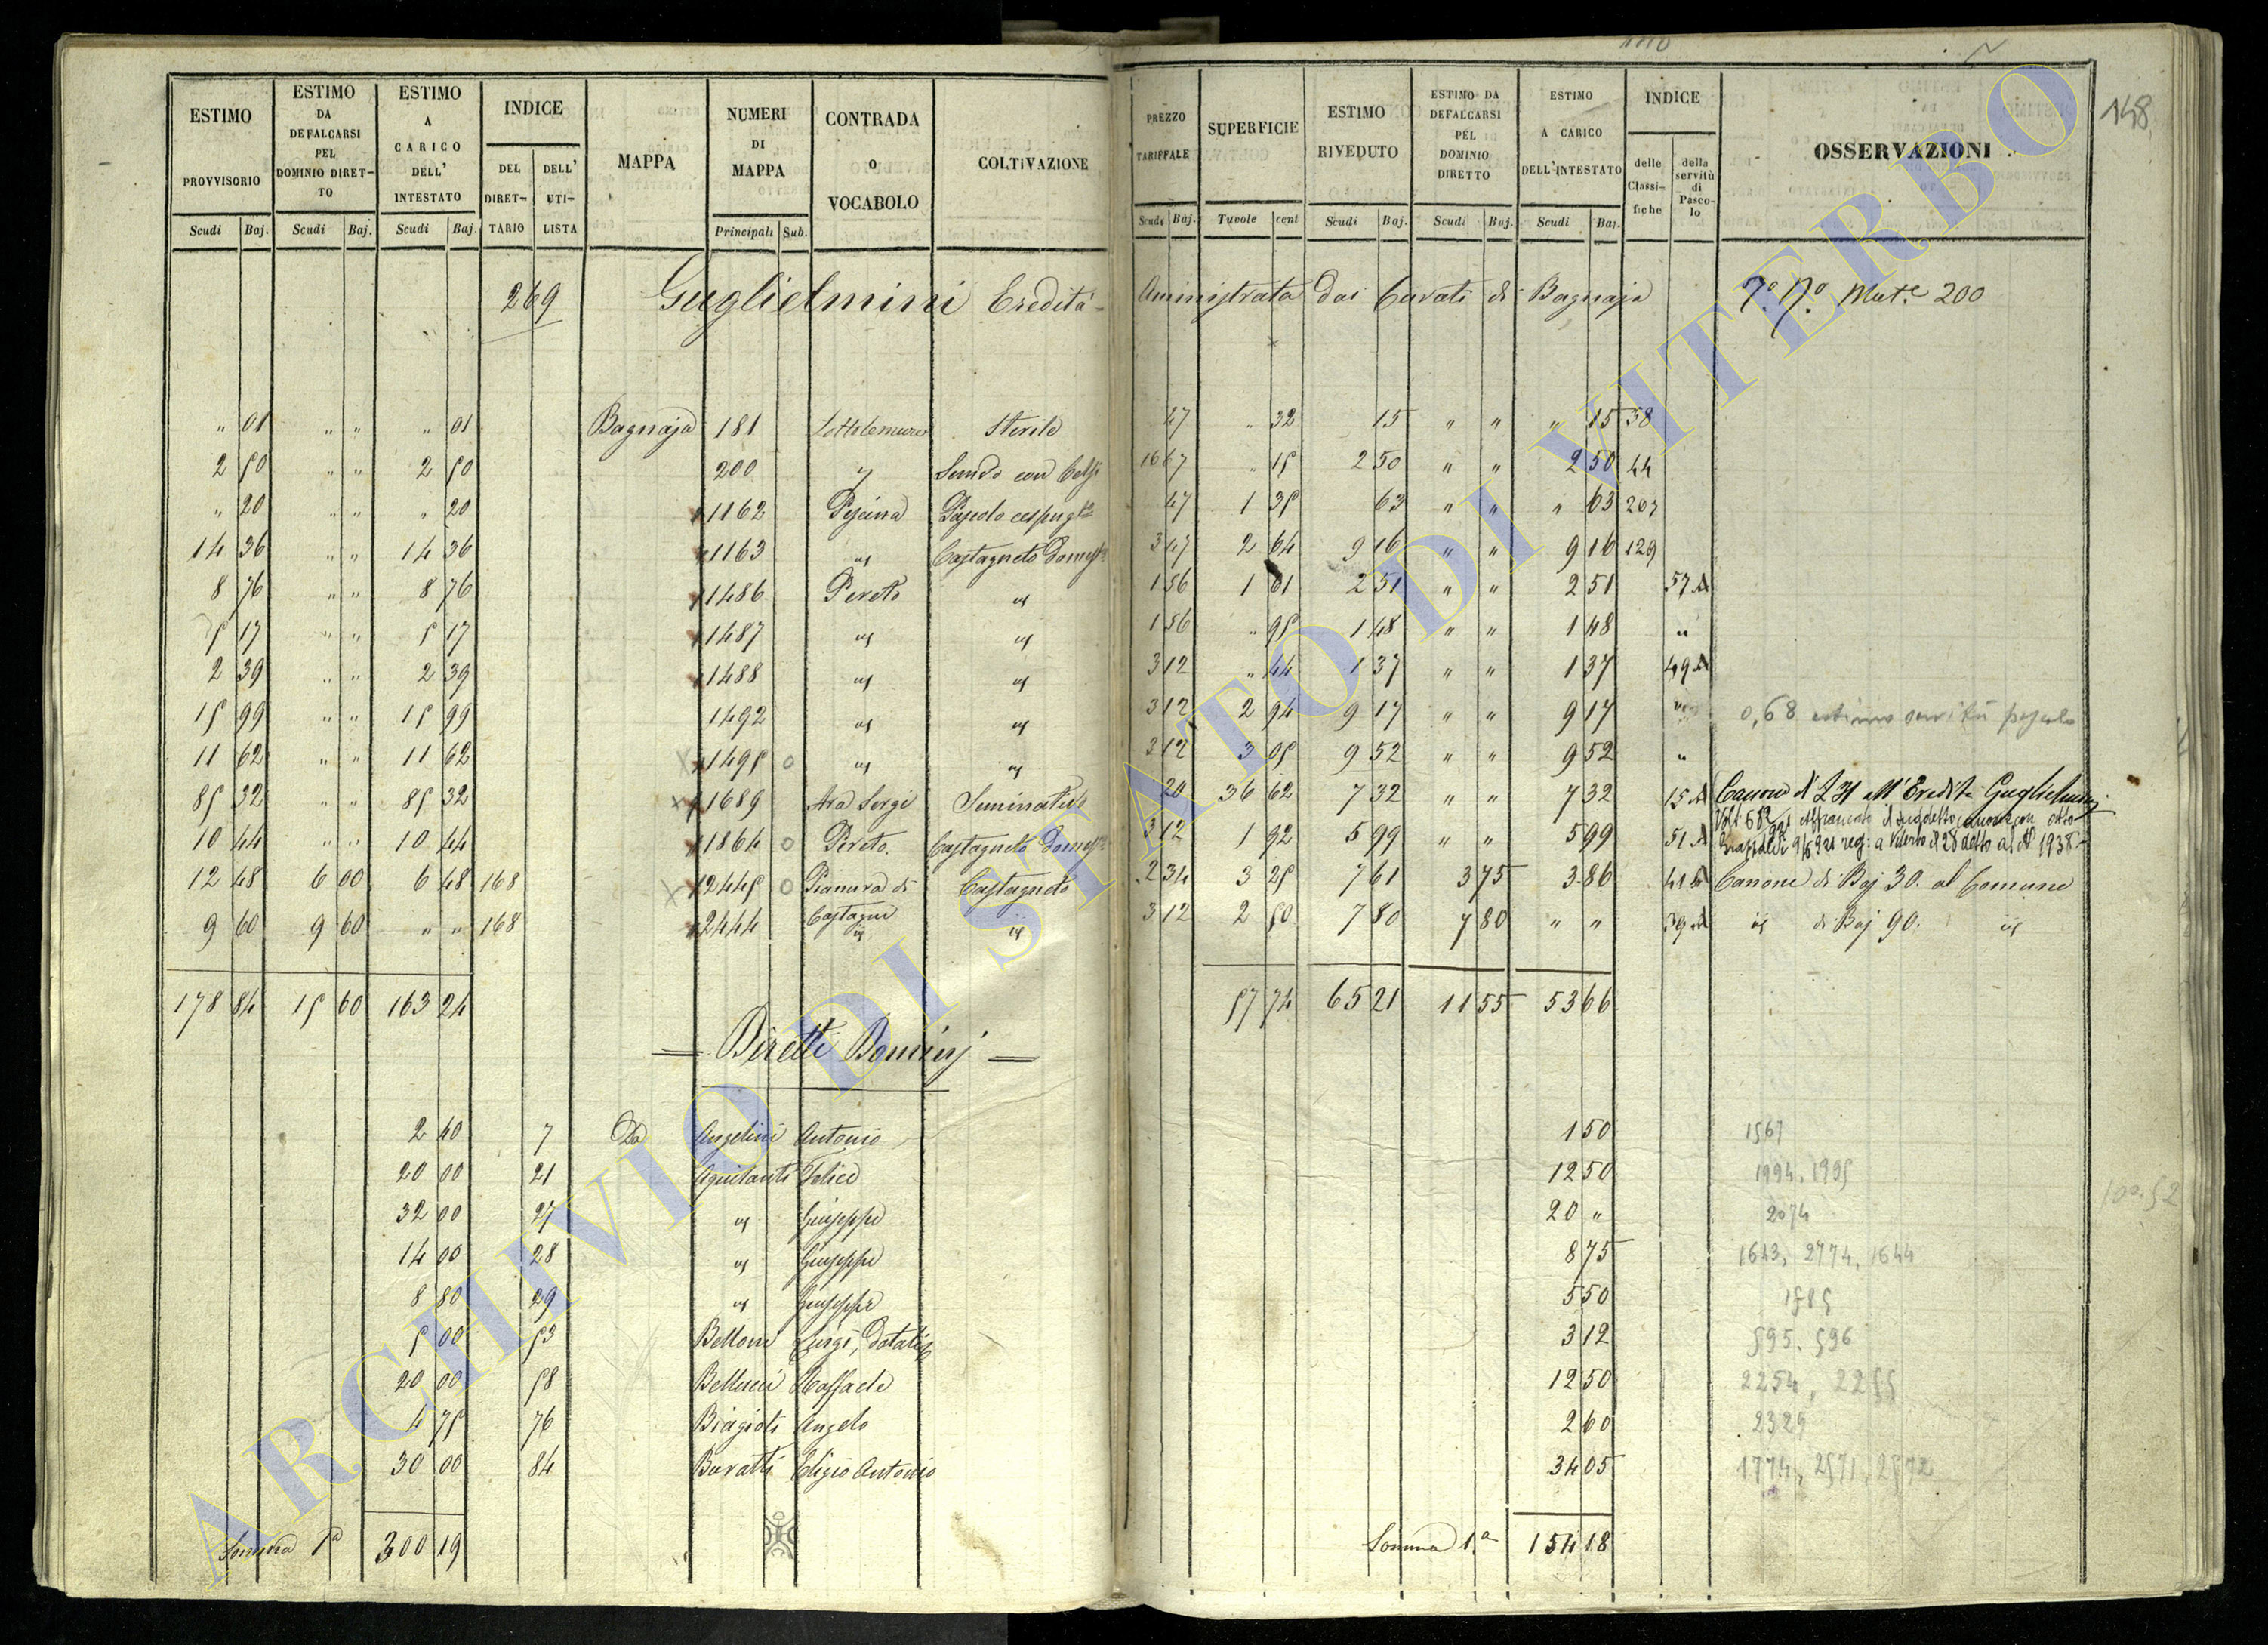 148
ESTIMO PROVVISORIO Scudi Baj. | ESTIMO DA DEFALCARSI PEL DOMINIO DIRETTO Scudi Baj. | ESTIMO A CARICO DELL' INTESTATO Scudi Baj. | INDICE DEL DIRETTARIO DELL' UTILISTA | MAPPA | NUMERI DI MAPPA Principali Sub. | CONTRADA o VOCABOLO | COLTIVAZIONE | PREZZO TARIFFALE Scudi Baj. | SUPERFICIE Tavole cent | ESTIMO RIVEDUTO Scudi Baj. | ESTIMO DA DEFALCARSI PEL DOMINIO DIRETTO Scudi Baj. | ESTIMO A CARICO DELL'INTESTATO Scudi Baj. | INDICE delle Classifiche della servitù di Pascolo | OSSERVAZIONI
269 Guglielmini Eredità Aministrata dai Curati di Bagnaja 200
" 01 " " " 01 Bagnaja 181 Sterile 27 " 32 15 " " " 15 38
2 50 " " 2 50 200 " 16 67 " 15 2 50 " " 2 50 44
" 20 " " " 20 1162 Piscina Pascolo cespug. 47 1 35 63 " " " 63 207
14 36 " " 14 36 1163 id Castagneto Domest. 3 47 2 64 9 16 " " 9 16 129
8 76 " " 8 76 1486 Pereto id 1 56 1 61 2 51 " " 2 51 57 A
5 17 " " 5 17 1487 id id 1 56 " 95 1 48 " " 1 48 "
2 39 " " 2 39 1488 id id 3 12 " 44 1 37 " " 1 37 49 A
15 99 " " 15 99 1492 id id 3 12 2 94 9 17 " " 9 17 0,68 estimo servitù pascolo
11 62 " " 11 62 1495 0 id id 3 12 3 05 9 52 " " 9 52 "
85 32 " " 85 32 1689 Ara Sergi Seminativo 20 36 62 7 32 " " 7 32 15 A Canone di all'Eredità Guglielmini
10 44 " " 10 44 1864 0 Pereto. Castagneto Domest. 3 12 1 92 5 99 " " 5 99 51 A
12 48 6 00 6 48 168 2445 0 Pianura di Castagneto 2 34 3 25 7 61 3 75 3 86 41 A Canone di Baj 30. al Comune
9 60 9 60 " " 168 2444 Castagno id id 3 12 2 50 7 80 7 80 " " 39 A id di Baj 90. id
178 84 15 60 163 24 57 74 65 21 11 55 53 66
Diretti Dominj
2 40 7 Da Angelini Antonio 1 50 1567
20 00 21 Aquilanti Felice 12 50 1994, 1995
32 00 27 id Giuseppe 20 " 2074
14 00 28 id Giuseppe 8 75 1643, 2774, 1644
8 80 29 id Giuseppe 5 50
5 00 53 Belloni Luigi, 3 12 595. 596
20 00 58 Bellucci Raffaele 12 50 2254, 2255
4 75 76 Biagioti Angelo 2 60 2329
30 00 84 Buratti Eligio Antonio 34 05 1774, 2571, 2572
Somma 1a 300 19 Somma 1.a 154 18
ARCHIVIO DI STATO DI VITERBO